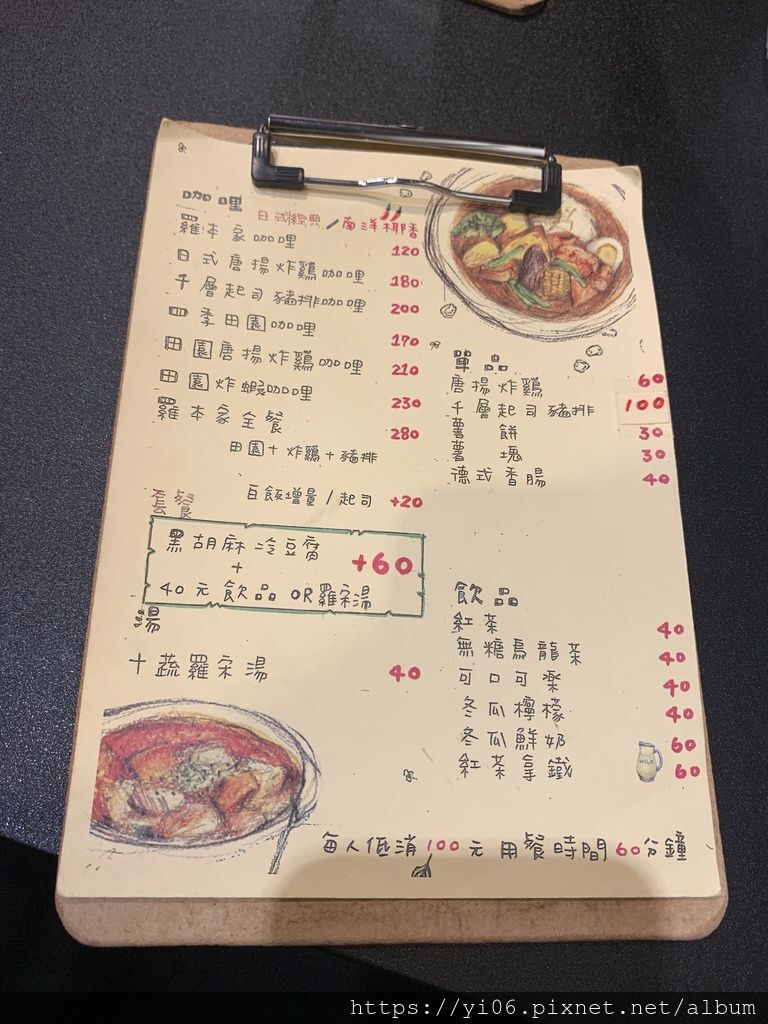 咖哩
日式經典／南洋椰香
羅本家咖哩 120
日式唐揚炸鷄咖哩 180
千層起司豬排咖哩 200
四季田園咖哩 170
田園唐揚炸鷄咖哩 210
田園炸蝦咖哩 230
羅本家全餐 280
田園＋炸鷄＋豬排
白飯增量／起司 +20
套餐
黑胡麻冷豆腐
+
40元飲品OR羅宋湯
+60
湯
十蔬羅宋湯 40
單品
唐揚炸鷄 60
千層起司豬排 100
薯餅 30
薯塊 30
德式香腸 40
飲品
紅茶 40
無糖烏龍茶 40
可口可樂 40
冬瓜檸檬 40
冬瓜鮮奶 60
紅茶拿鐵 60
MILK
每人低消100元 用餐時間60分鐘
https://yi06.pixnet.net/album